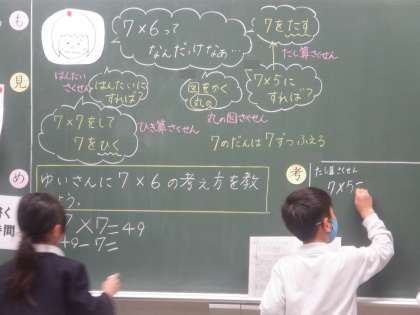 も
7×6って
なんだっけなぁ…
7をたす
たし算さくせん
見
はんたい
さくせん
はんたいに
すれば?
図をかく
丸の
7×5に
すれば?
丸の図さくせん
7×7をして
7をひく
ひき算さくせん
7のだんは7ずつふえる
め
ゆいさんに7×6の考え方を教
よう。
7×7=49
49-7=
考
たし算さくせん
7×5=
く
時間